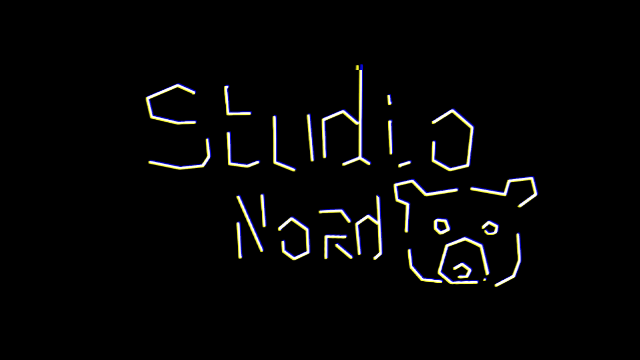 Studio
Nord